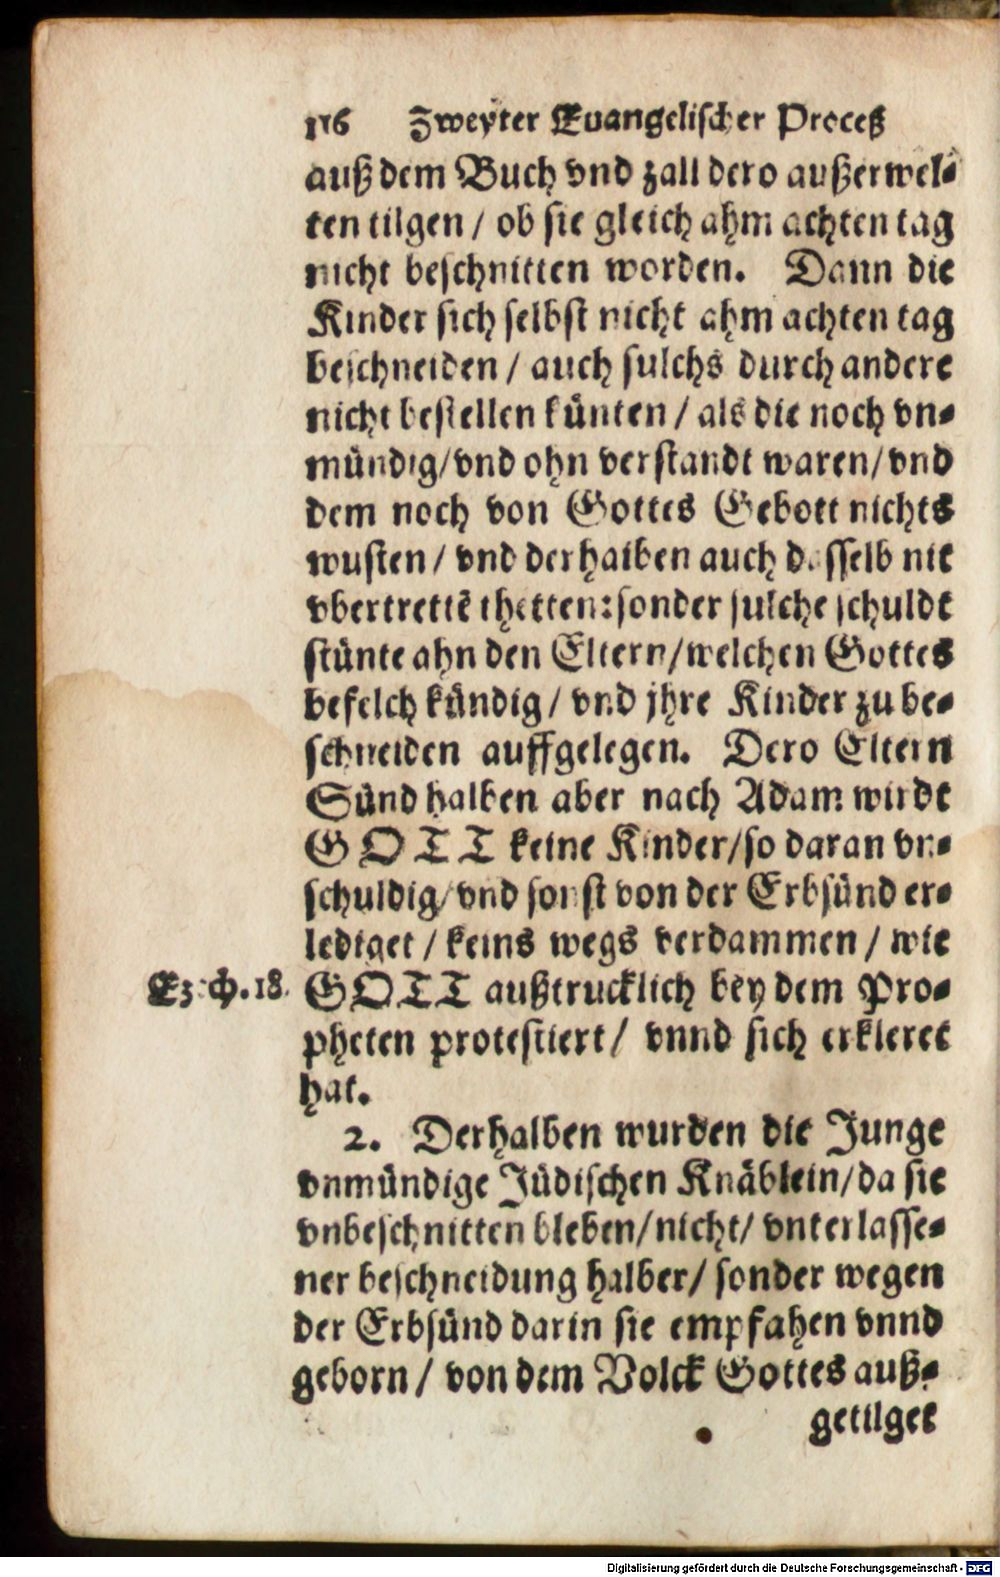 116 Zweyter Euangelischer Proceß
auß dem Buch vnd zall dero außerwel-
ten tilgen / ob sie gleich ahm achten tag
nicht beschnitten worden. Dann die
Kinder sich selbst nicht ahm achten tag
beschneiden / auch sulchs durch andere
nicht bestellen künten / als die noch vn-
mündig/vnd ohn verstandt waren/vnd
dem noch von Gottes Gebott nichts
wusten / vnd derhalben auch dasselb nit
vbertrettē thetten: sonder sulche schuldt
stünte ahn den Eltern/welchen Gottes
befelch kündig / vnd jhre Kinder zu be-
schneiden auffgelegen. Dero Eltern
Sünd halben aber nach Adam wirdt
GOTT keine Kinder/so daran vn-
schuldig/vnd sonst von der Erbsünd er-
lediget / keins wegs verdammen / wie
Ezech.18. GOTT außtrucklich bey dem Pro-
pheten protestiert / vnnd sich erkleret
hat.
2. Derhalben wurden die Junge
vnmündige Jüdischen Knäblein/da sie
vnbeschnitten bleben/nicht/ vnterlasse-
ner beschneidung halber/ sonder wegen
der Erbsünd darin sie empfahen vnnd
geborn / von dem Volck Gottes auß-
getilget
Digitalisierung gefördert durch die Deutsche Forschungsgemeinschaft - DFG